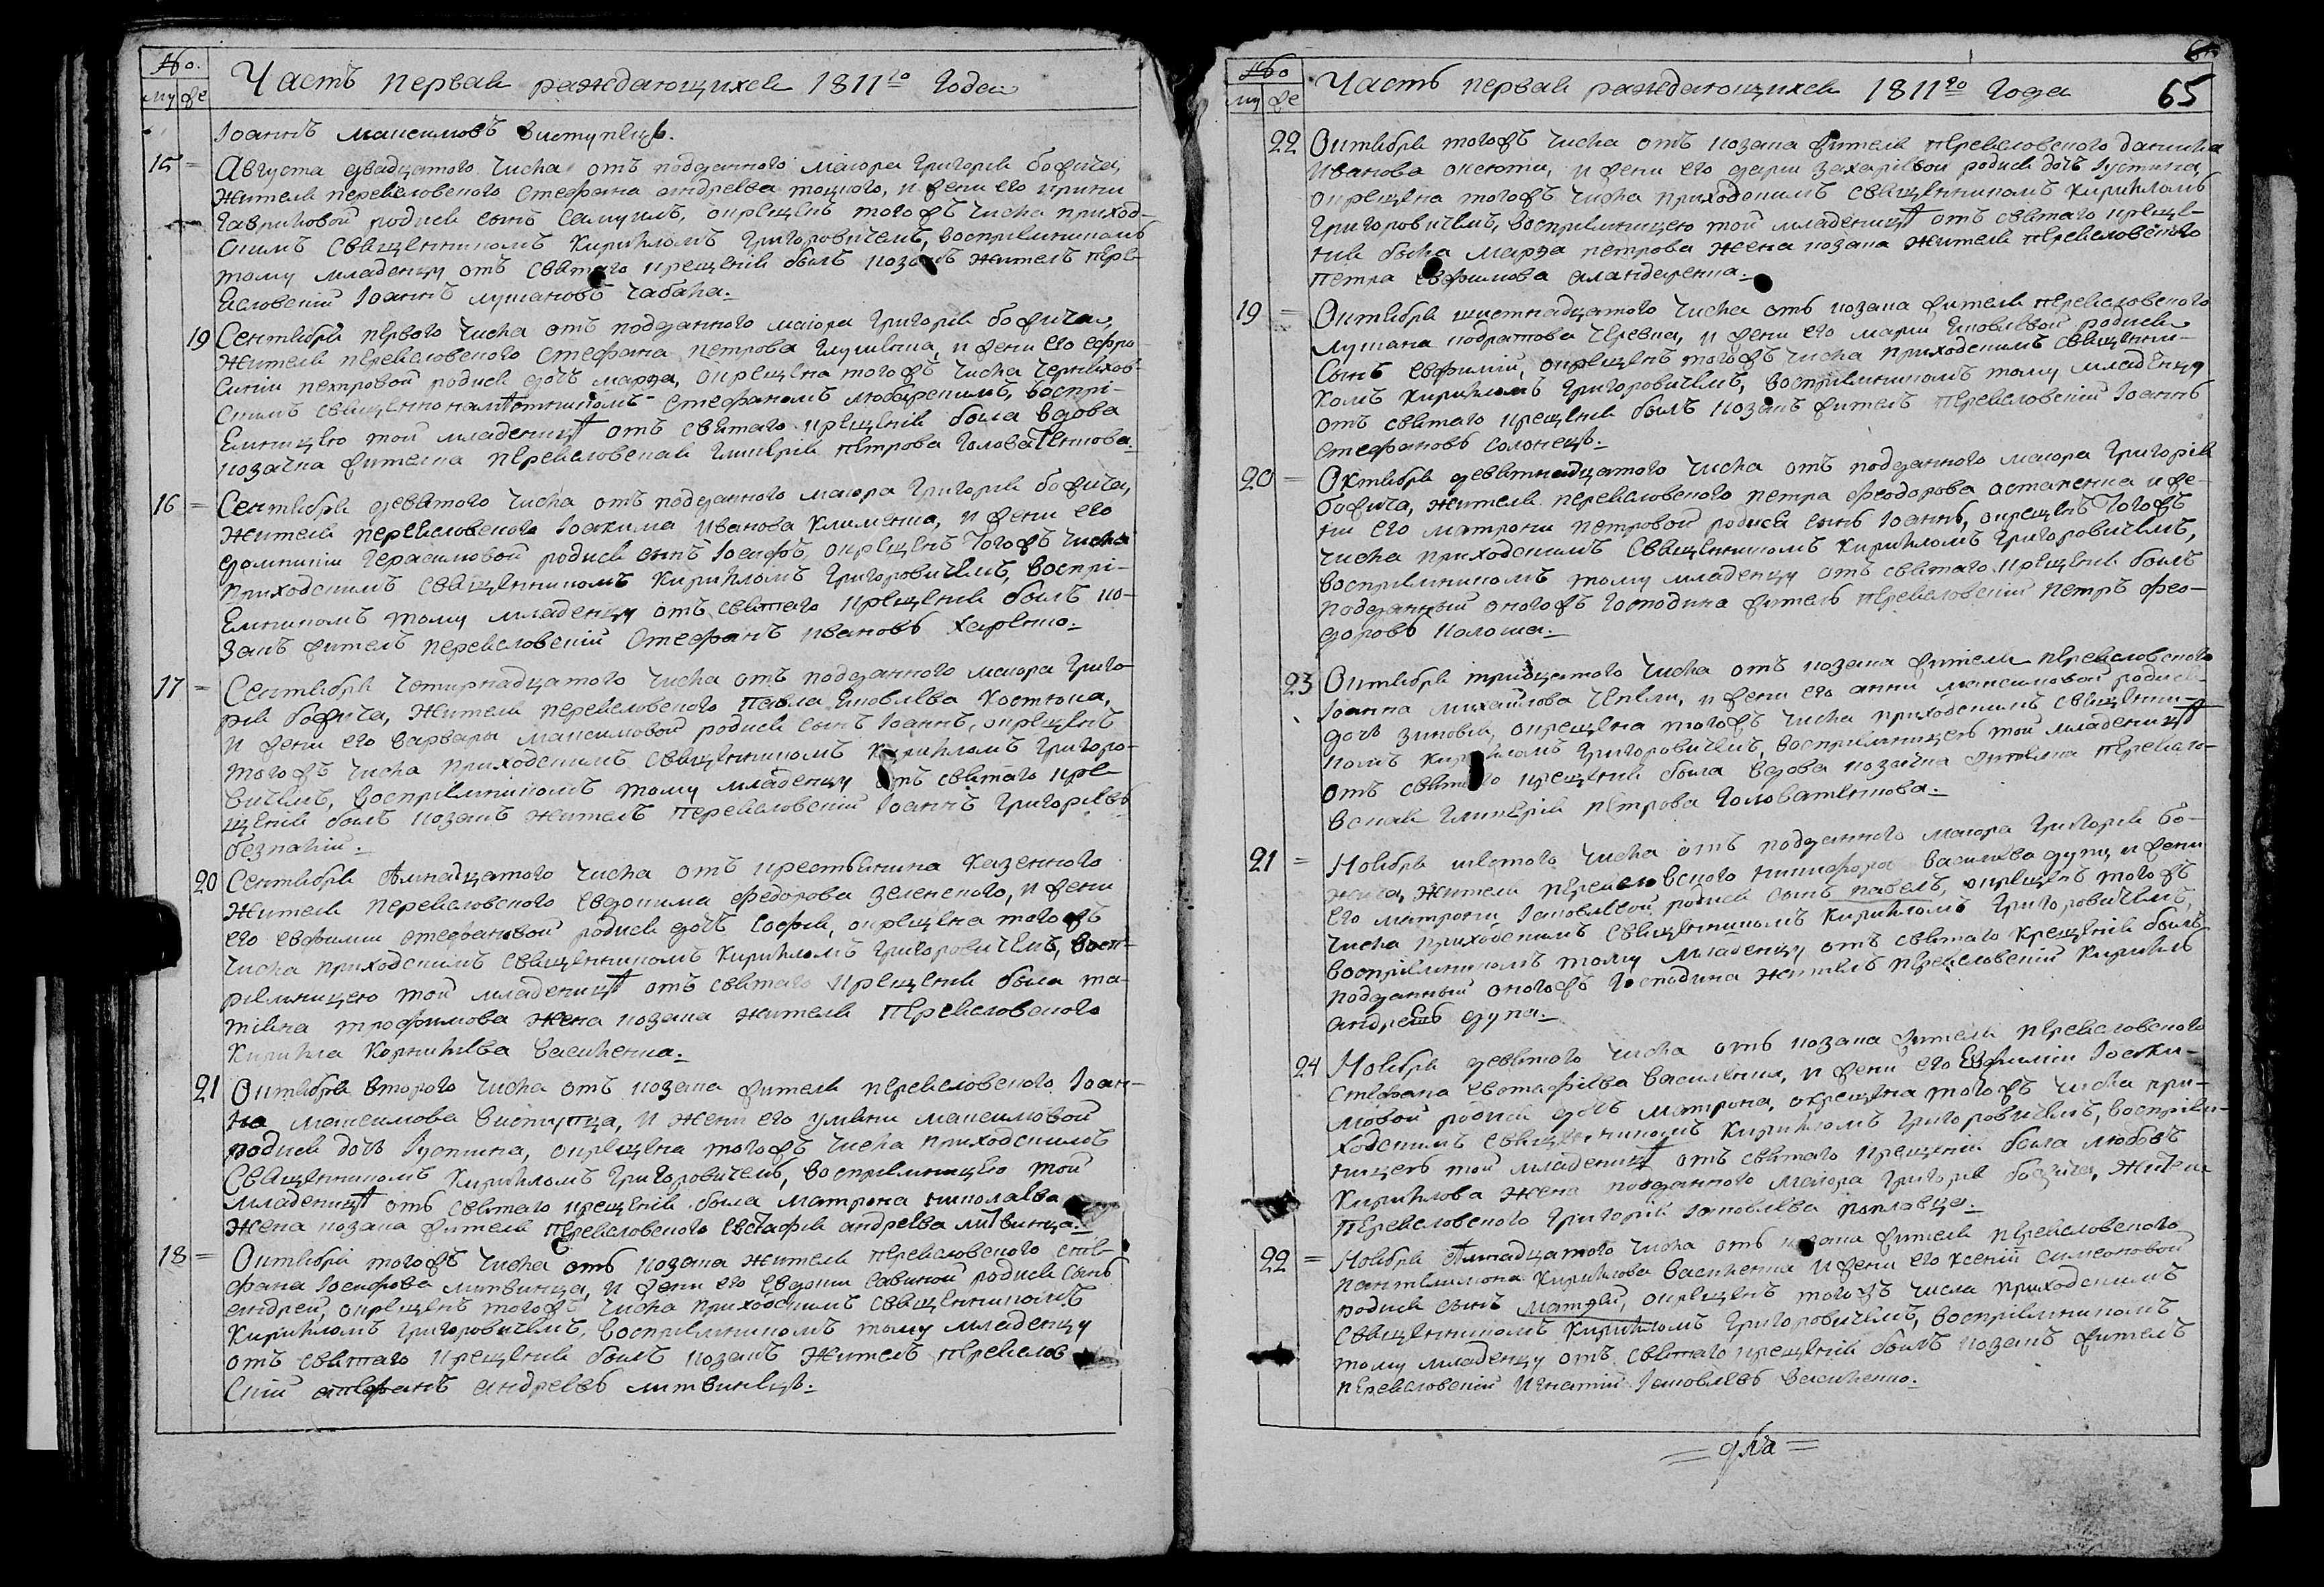 №о.
му фе
Часть первая раждающихся 1811го Года
Іоаннъ максимовъ виступецъ.
15 = Августа двадцатого числа отъ подданного маіора григорія божича,
жителя переясловского Стефана андреева тоцкого, и жены его ирини
гавриловой родися сынъ Самуилъ, окрещенъ того жъ числа приход-
скимъ священникомъ Кирилломъ Григоровичемъ, воспріемникомъ
тому младенцу отъ святаго крещенія былъ козакъ житель пере-
ясловскій Іоаннъ лукяновъ чабака.
19 Сентября первого числа отъ подданного маіора Григорія божича,
жителя переясловского Стефана петрова глушенка, и жены его ефро-
синіи петровой родися дочъ марѳа, окрещена того жъ числа черняхов-
скимъ священнонамѣстникомъ Стефаномъ любарскимъ, воспрі-
емницею той младеницѣ отъ святаго крещенія была вдова
козачка жителка переясловская гликерія петрова Головатенкова.
16 = Сентября девятого числа отъ подданного маіора григорія божича,
жителя переясловского Іоакима иванова Клименка, и жены его
домникіи герасимовой родися сынъ Іосифъ, окрещенъ того жъ числа
приходскимъ священникомъ Кирилломъ Григоровичемъ, воспрі-
емникомъ тому младенцу отъ святаго крещенія былъ ко-
закъ житель переясловскій Стефанъ ивановъ харенко.
17 = Сентября четирнадцатого числа отъ подданного маіора Григо-
рія божича, жителя переясловского Павла яковлева Костюка,
и жены его варвары максимовой родися сынъ Іоаннъ, окрещенъ
того жъ числа приходскимъ священникомъ Кирилломъ Григоро-
вичемъ, воспріемникомъ тому младенцу отъ святаго кре-
щенія былъ козакъ житель переясловскій Іоаннъ григоріевъ
безпалій.
20 Сентября осмнадцатого числа отъ крестянина казенного
жителя переясловского евдокима федорова зеленского, и жены
его евфиміи стефановой родися дочъ Софія, окрещена того жъ
числа приходскимъ священникомъ Кирилломъ Григоровичемъ, восп-
ріемницею той младеницѣ отъ святаго крещенія была та-
тіяна трофимова жена козака жителя переясловского
Кирилла Корнилева василенка.
21 Октября второго числа отъ козака жителя переясловского Іоан-
на максимова виступца, и жены его уляни максимовой
родися дочъ Іустина, окрещена того жъ числа приходскимъ
Священникомъ Кирилломъ Григоровичемъ, воспріемницею той
младеницѣ отъ святаго крещенія была матрона николаева
жена козака жителя переясловского евстафія андреева литвинца.
18 = Октября того жъ числа отъ козака жителя переясловского сте-
фана Іосифова литвинца, и жены его евдокіи савиной родися сынъ
андрей, окрещенъ того жъ числа приходскимъ священникомъ
Кирилломъ Григоровичемъ, воспріемникомъ тому младенцу
отъ святаго крещенія былъ козакъ житель переяслов
скій стефанъ андреевъ литвинецъ.
№о
му фе
Часть первая раждающихся 1811го Года
65
22 Октября того жъ числа отъ козака жителя переясловского данила
иванова оксюти, и жены его даріи захаріевой родися дочъ Іустина,
окрещена того жъ числа приходскимъ священникомъ Кирилломъ
Григоровичемъ, воспріемницею той младеницѣ отъ святаго креще-
нія была марѳа петрова жена козака жителя переясловского
петра евфимова
19 = Октября шистнадцатого числа отъ козака жителя переясловского
лукяна кодратова черевка, и жены его маріи яковлевой родися
Сынъ евфимій, окрещенъ того жъ числа приходскимъ священни-
комъ Кирилломъ Григоровичемъ, воспріемникомъ тому младенцу
отъ святаго крещенія былъ козакъ житель переясловскій Іоаннъ
стефановъ солонецъ.
20 = Октября девятнадцатого числа отъ подданного маіора Григорія
божича, жителя переясловского петра феодорова остапенка и же-
ни его матрони петровой родися сынъ Іоаннъ, окрещенъ того жъ
числа приходскимъ священникомъ Кирилломъ Григоровичемъ,
воспріемникомъ тому младенцу отъ святаго крещенія былъ
подданный оного жъ господина житель переясловскій петръ фео-
доровъ калоша.
23 Октября тридцатого числа отъ козака жителя переясловского
Іоанна михайлова чепели, и жены его анни максимовой родися
дочъ зиновія, окрещена того жъ числа приходскимъ священни-
комъ Кирилломъ Григоровичемъ, воспріемницею той младеницѣ
отъ святаго крещенія была вдова козачка жителка переясло-
вская гликерія петрова Головатенкова.
21 = Ноября шестого числа отъ подданного маіора Григорія бо-
жича, жителя переясловского никифора василіева дупи, и жены
его матрони яковлевой родися сынъ павелъ, окрещенъ того жъ
числа приходскимъ священникомъ Кирилломъ Григоровичемъ,
воспріемникомъ тому младенцу отъ святаго крещенія былъ
подданный оного жъ господина житель переясловскій Кириллъ
андреевъ дупа.
24 Ноября девятого числа отъ козака жителя переясловского
Стефана евстафіева василенка, и жены его евфиміи Іоаки-
мовой родися дочъ матрона, окрещена того жъ числа при-
ходскимъ священникомъ Кирилломъ Григоровичемъ, воспріем-
ницею той младеницѣ отъ святаго крещенія была любовъ
Кирилова жена подданного маіора Григорія божича, жителя
переясловского Григорія яковлева поплавца.
22 = Ноября осмнадцатого числа отъ козака жителя переясловского
пантелимона Кирилова василенка и жены его ксеніи симеоновой
родися сынъ матѳей, окрещенъ того жъ числа приходскимъ
священникомъ Кирилломъ Григоровичемъ, воспріемникомъ
тому младенцу отъ святаго крещенія былъ козакъ житель
переясловскій игнатій яковлевъ василенко.